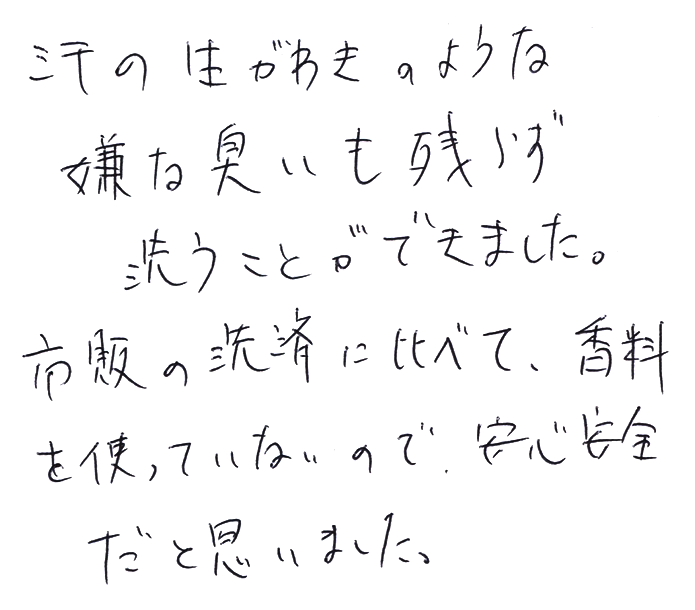 汗の生がわきのような
嫌な臭いも残らず
洗うことができました。
市販の洗済に比べて、香料
を使っていないので、安心安全
だと思いました。